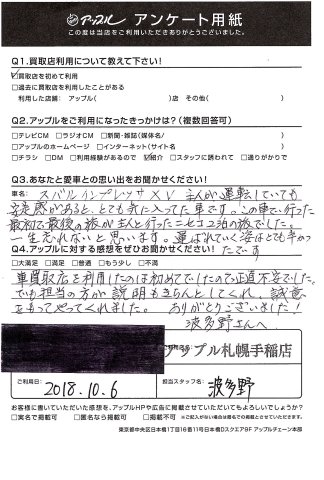 アップル アンケート用紙
この度は当店をご利用いただきありがとうございました。
Q1.買取店利用について教えて下さい!
☑買取店を初めて利用
□過去に買取店を利用したことがある
利用した店舗: アップル( )店 その他( )
Q2.アップルをご利用になったきっかけは?(複数回答可)
□テレビCM □ラジオCM □新聞・雑誌(媒体名/ )
□アップルのホームページ □インターネット(サイト名 )
□チラシ □DM □利用経験があるので ☑紹介 □スタッフに誘われて □通りがかりで
Q3.あなたと愛車との思い出をお聞かせください!
車名: スバルインプレッサXV 主人が運転していても
安定感があると、とても気に入ってた車です。この車で行った
最初で最後の旅が主人と行ったニセコ2泊の旅でした。
一生忘れないと思います。運ばれていく姿はとても辛かっ
たです
Q4.アップルに対する感想をぜひお聞かせください!
□大満足 □満足 □普通 □もう少し □不満
車買取店を利用したのは初めてでしたので正直不安でした。
でも担当の方が説明もきちんとしてくれ、誠意
をもってやってくれました。ありがとうございました!
波多野さんへ
アップル札幌手稲店
ご利用日 2018.10.6
担当スタッフ名 波多野
お客様に書いていただいた感想を、アップルHPや広告に掲載させていただいてもよろしいでしょうか?
□実名で掲載可 □匿名なら掲載可 □掲載不可 ※ご記入がない場合は匿名での掲載とさせていただきます。
東京都中央区日本橋1丁目16番11号日本橋Dスクエア9F アップルチェーン本部